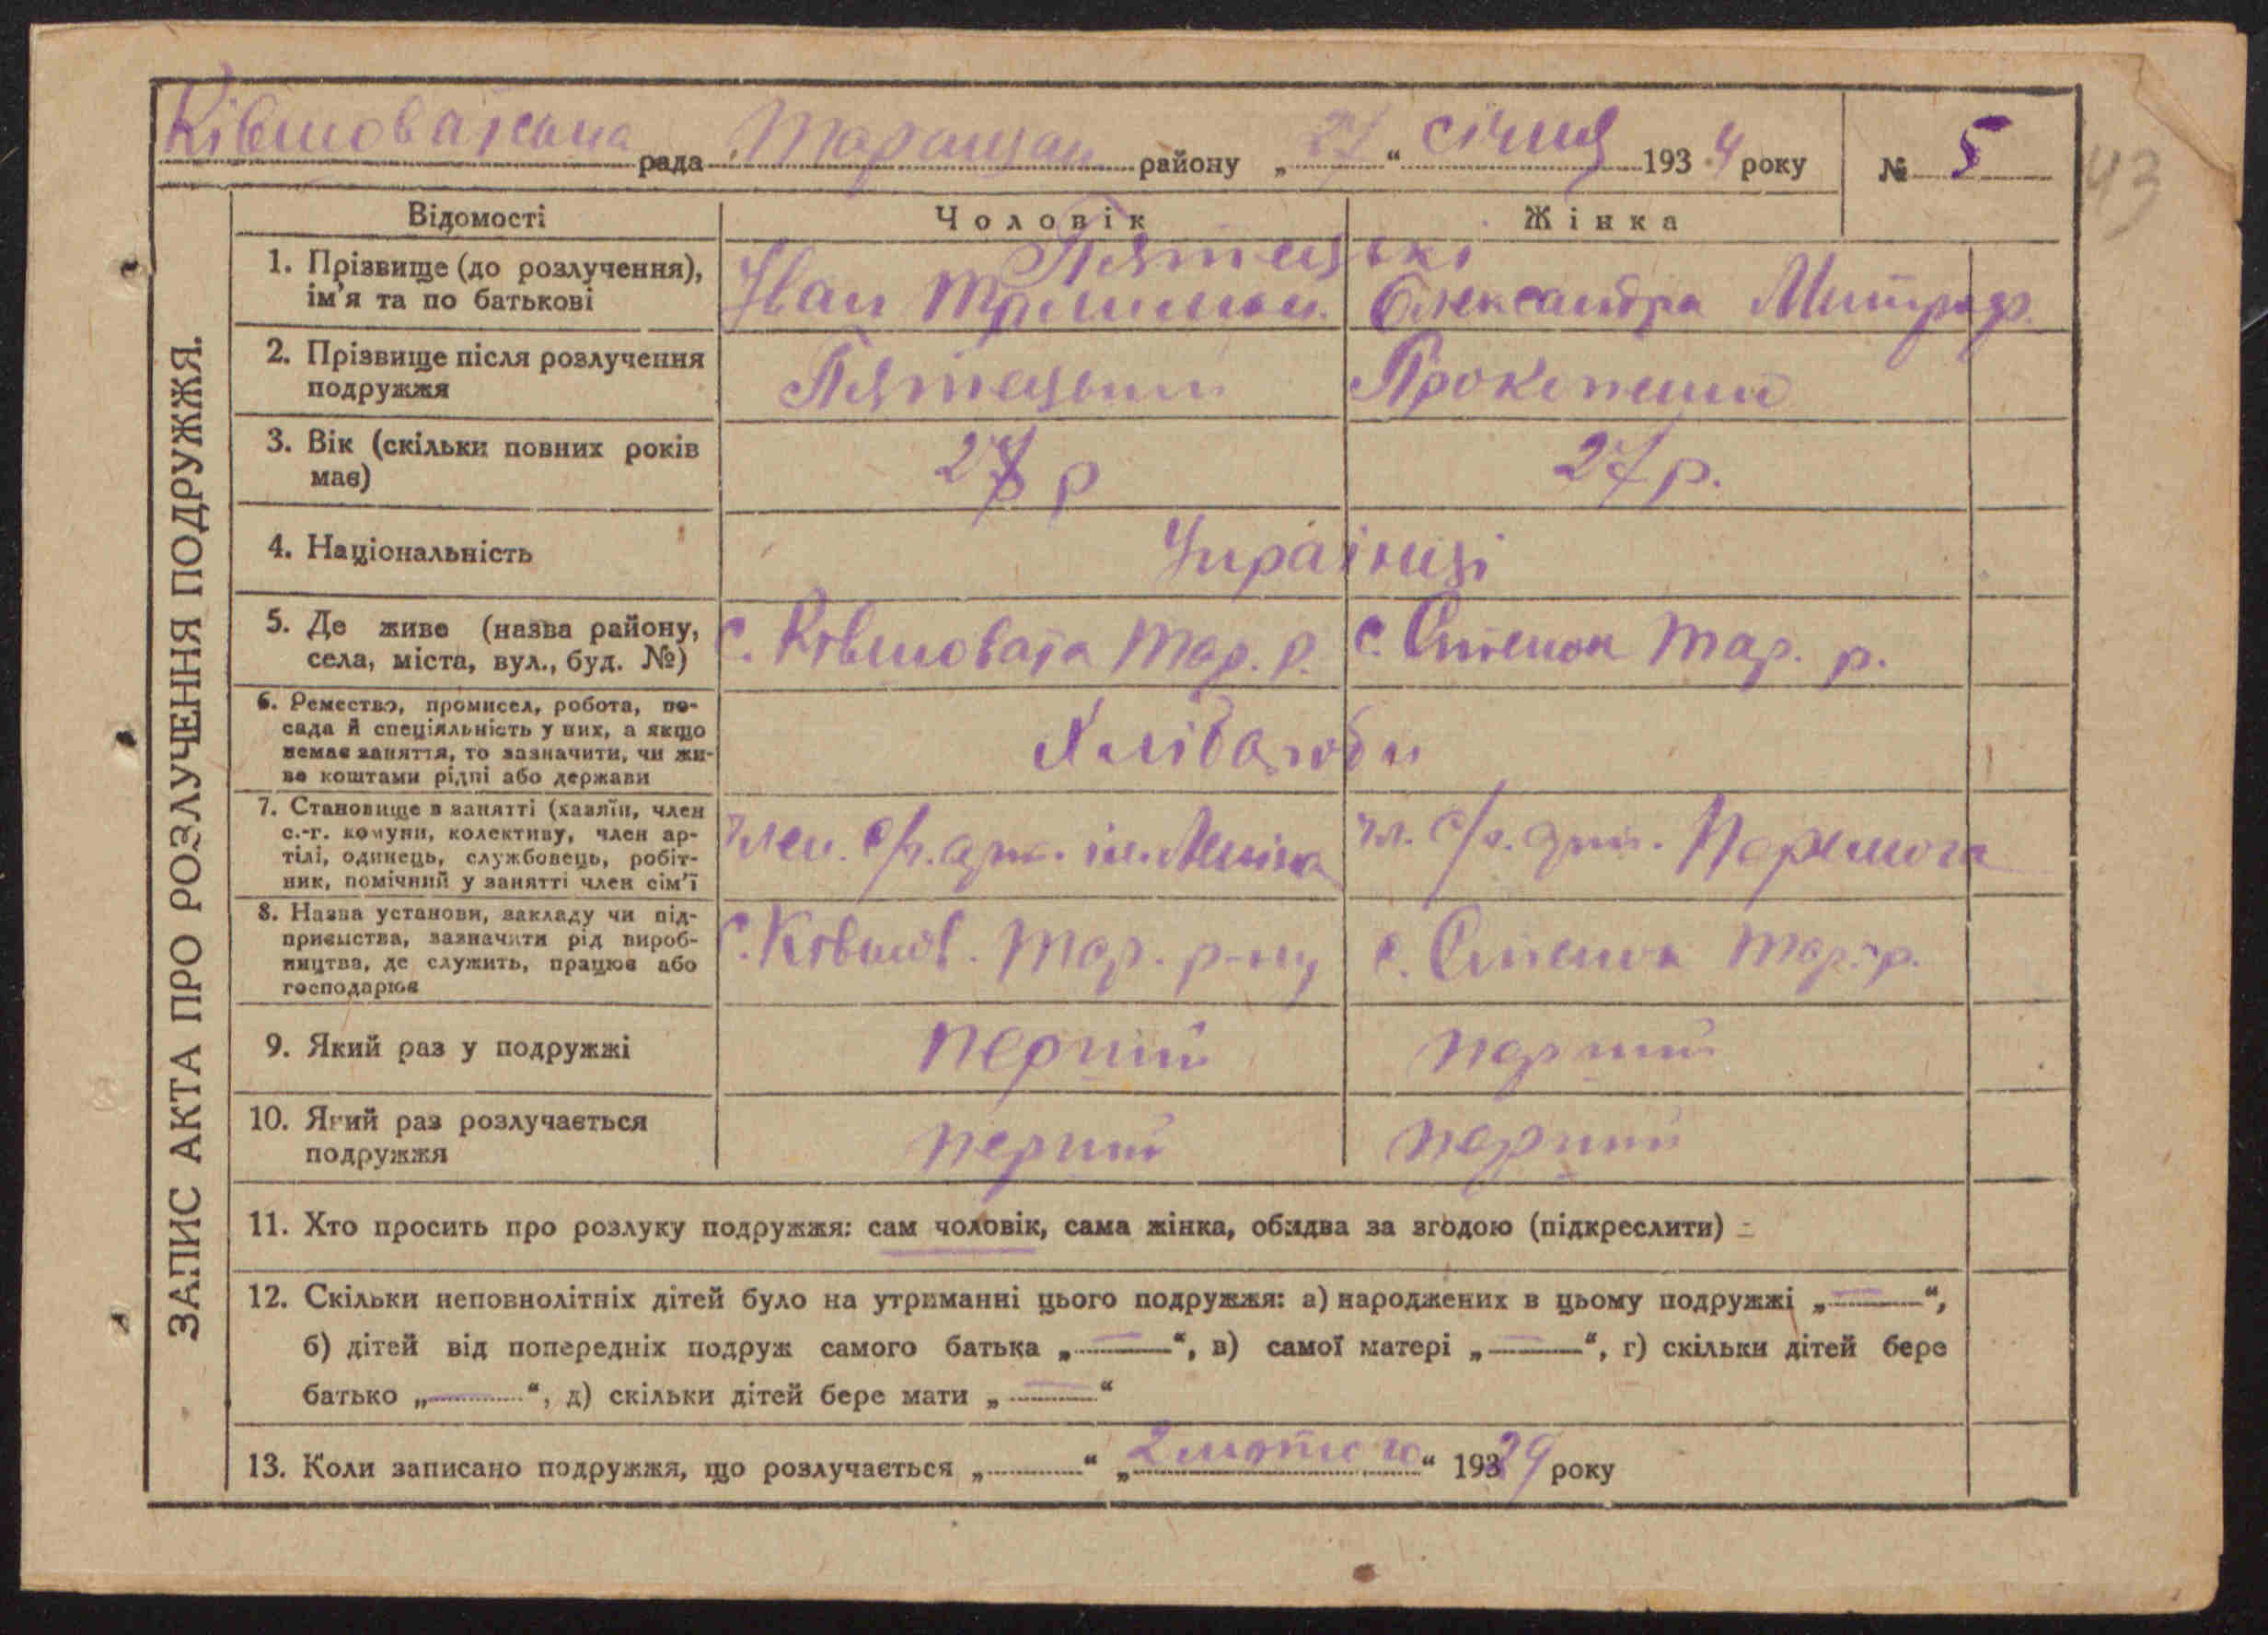 Ківшоватська рада Таращан району „27“ січня 1934 року № 5
43
ЗАПИС АКТА ПРО РОЗЛУЧЕННЯ ПОДРУЖЖЯ.
Відомості Чоловік Жінка
1. Прізвище (до розлучення), ім'я та по батькові
Іван
Олександра Митроф.
2. Прізвище після розлучення подружжя
3. Вік (скільки повних років має)
27 р.
4. Національність
Українці
5. Де живе (назва району, села, міста, вул., буд. №)
с. Ківшовата Тар. р. с. Степок Тар. р.
6. Ремество, промисел, робота, посада й спеціяльність у них, а якщо немає заняття, то зазначити, чи живе коштами рідні або держави
Хлібороби
7. Становище в занятті (хазяїн, член с.-г. комуни, колективу, член артілі, одинець, службовець, робітник, помічний у занятті член сім'ї
член. с/г. арт. ім. Леніна чл. с/г. арт. Перемога
8. Назва установи, закладу чи підприємства, зазначити рід виробництва, де служить, працює або господарює
с. Ківшов. Тар. р-ну с. Степок Тар. р.
9. Який раз у подружжі
перший перший
10. Який раз розлучається подружжя
перший перший
11. Хто просить про розлуку подружжя: сам чоловік, сама жінка, обидва за згодою (підкреслити)
12. Скільки неповнолітніх дітей було на утриманні цього подружжя: а) народжених в цьому подружжі „—“,
б) дітей від попередніх подруж самого батька „—“, в) самої матері „—“, г) скільки дітей бере
батько „—“, д) скільки дітей бере мати „—“
13. Коли записано подружжя, що розлучається „ “ „2 лютого“ 19329 року